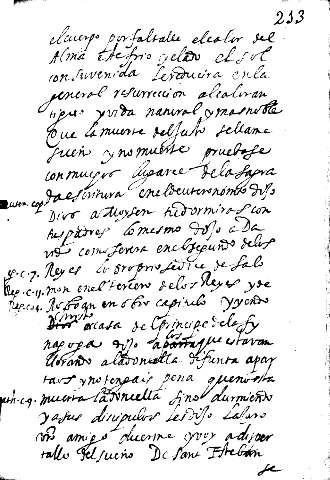 233
el cuerpo por faltalle el calor del
Alma esté frio y elado el sol
con su venida le reducira en la
general resurrecion al calor an
tiguo y vida natural y mas noble
Que la muerte del justo se llame
sueño y no muerte pruebase
con muchos lugares de la sagra
da escritura en el deuteronomio dijo
Dios a Moysen tu dormiras con
tus padres lo mesmo dijo a Da
vid como se ve en el segundo de los
Reyes lo proprio se dice de Salo
mon en el tercero de los Reyes y de
Roboan en otro capitulo y yendo
christo
a casa del principe de la sy
nagoga dijo a los que estavan
llorando a la doncella difunta apar
taos y no tengais pena que no es
muerta la doncella sino durmiendo
y a sus discipulos les dijo Lazaro
nro amigo duerme y voy a disper
tallo del sueño De Sant Esteban
se